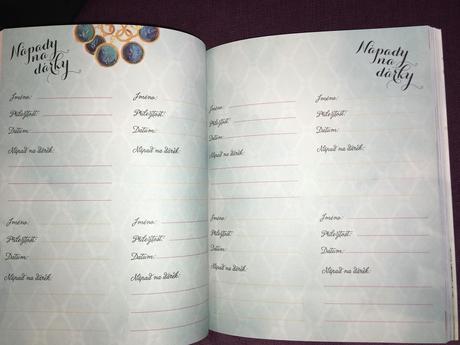 Nápady
na
dárky
Jméno:
Příležitost:
Datum:
Nápad na dárek:
Jméno:
Příležitost:
Datum:
Nápad na dárek:
Jméno:
Příležitost:
Datum:
Nápad na dárek:
Jméno:
Příležitost:
Datum:
Nápad na dárek:
Nápady
na
dárky
Jméno:
Příležitost:
Datum:
Nápad na dárek:
Jméno:
Příležitost:
Datum:
Nápad na dárek:
Jméno:
Příležitost:
Datum:
Nápad na dárek:
Jméno:
Příležitost:
Datum:
Nápad na dárek: